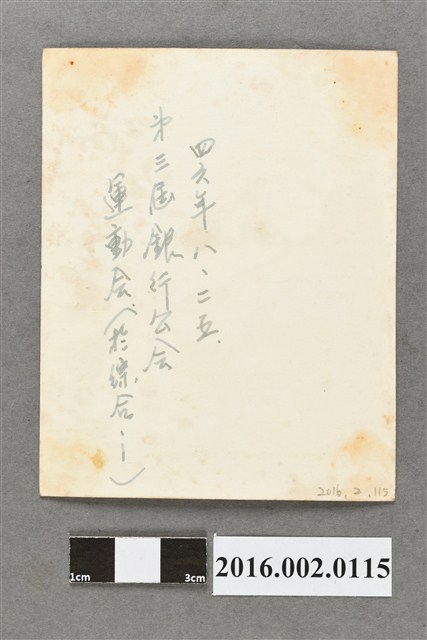 四六年八、二五.
第三屆銀行公会
運動会、(於綜合
2016.2.115
1cm
3cm
2016.002.0115